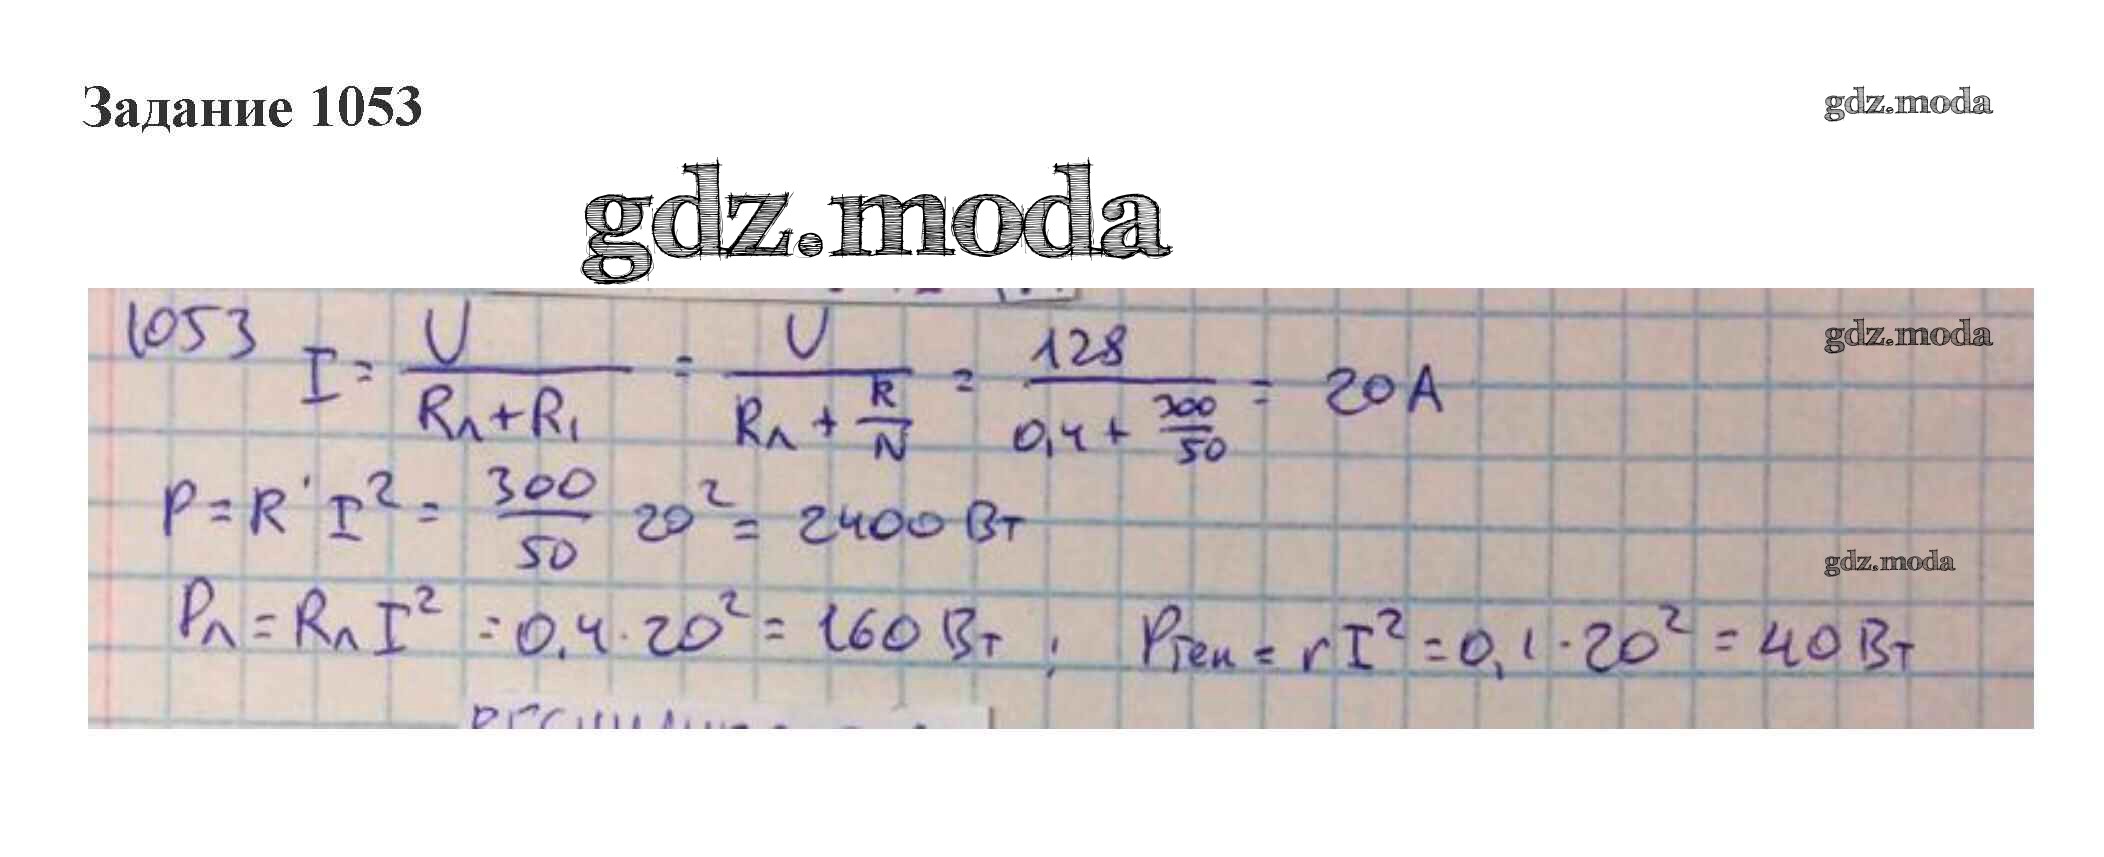 Задание 1053
gdz.moda
gdz.moda
1053 I = U / (Rл + R₁) = U / (Rл + R/N) = 128 / (0,4 + 300/50) = 20 А
gdz.moda
P = R' I² = 300/50 20² = 2400 Вт
gdz.moda
Pл = Rл I² = 0,4 · 20² = 160 Вт ; Pген = r I² = 0,1 · 20² = 40 Вт